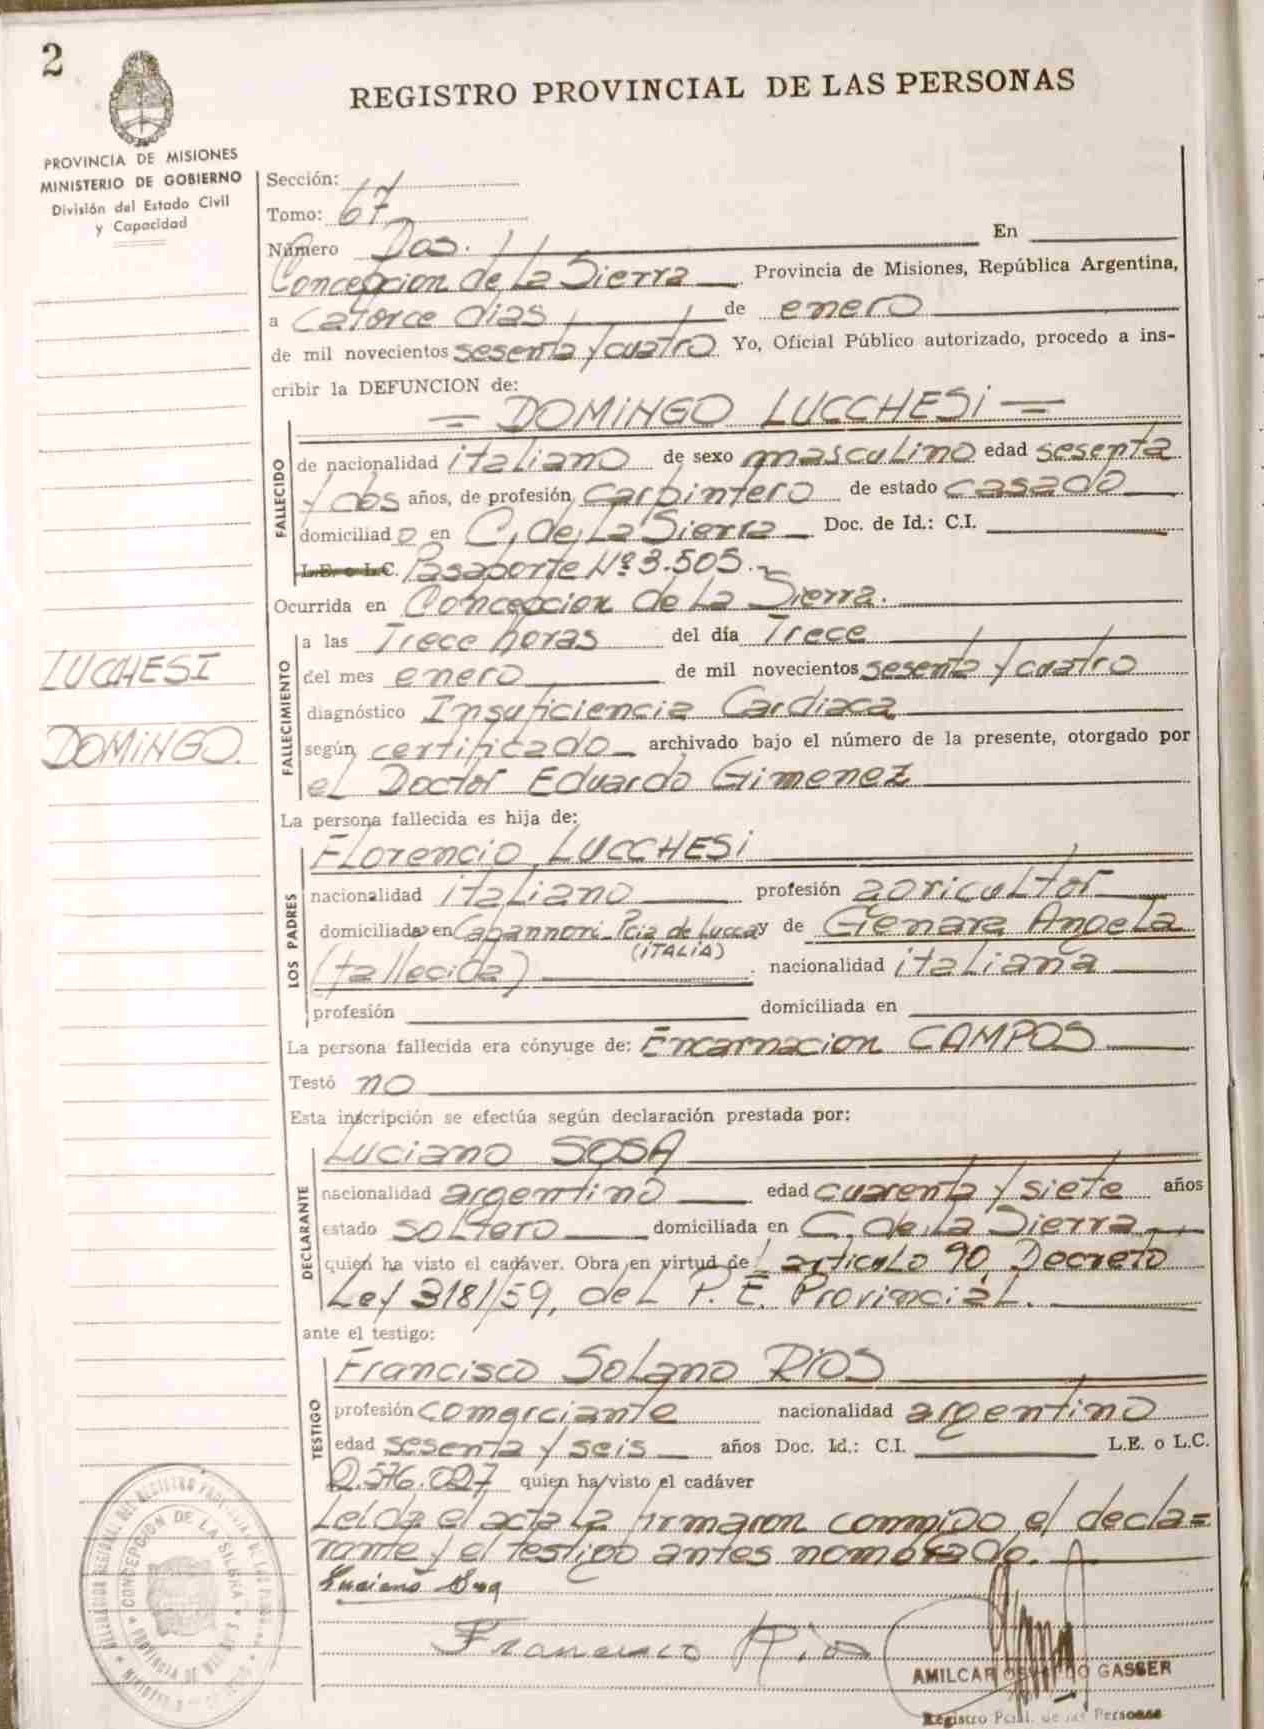 2
REGISTRO PROVINCIAL DE LAS PERSONAS
PROVINCIA DE MISIONES
MINISTERIO DE GOBIERNO
División del Estado Civil
y Capacidad
Sección:
Tomo: 67
Número Dos. En
Concepcion de La Sierra Provincia de Misiones, República Argentina,
a Catorce dias de enero
de mil novecientos sesenta y cuatro Yo, Oficial Público autorizado, procedo a ins-
cribir la DEFUNCION de:
= DOMINGO LUCCHESI =
FALLECIDO
de nacionalidad italiano de sexo masculino edad sesenta
y dos años, de profesión Carpintero de estado casado
domiciliado en C. de La Sierra Doc. de Id.: C.I.
L.E. o L.C. Pasaporte Nº 3.505.-
Ocurrida en Concepcion de La Sierra.
FALLECIMIENTO
a las Trece horas del día Trece
del mes enero de mil novecientos sesenta y cuatro
diagnóstico Insuficiencia Cardiaca
según certificado archivado bajo el número de la presente, otorgado por
el Doctor Eduardo Gimenez
LUCCHESI
DOMINGO.
La persona fallecida es hija de:
LOS PADRES
Florencio LUCCHESI
nacionalidad italiano profesión agricultor
domiciliado en Capannori-Pcia de Lucca y de Genara Angela
(ITALIA)
(fallecida) nacionalidad italiana
profesión domiciliada en
La persona fallecida era cónyuge de: Encarnacion CAMPOS
Testó no
Esta inscripción se efectúa según declaración prestada por:
DECLARANTE
Luciano SOSA
nacionalidad argentino edad cuarenta y siete años
estado soltero domiciliada en C. de La Sierra
quien ha visto el cadáver. Obra en virtud del articulo 90 Decreto
Ley 3181/59, del P. E. Provincial.
ante el testigo:
TESTIGO
Francisco Solano RIOS
profesión comerciante nacionalidad argentino
edad sesenta y seis años Doc. Id.: C.I. L.E. o L.C.
2.576.027 quien ha visto el cadáver
Leida el acta la firmaron conmigo el decla=
rante y el testigo antes nombrado.
Luciano Sosa
Francisco Rios
AMILCAR OSVALDO GASSER
Registro Pcial. de las Personas
CONCEPCION DE LA SIERRA
PROVINCIA DE MISIONES